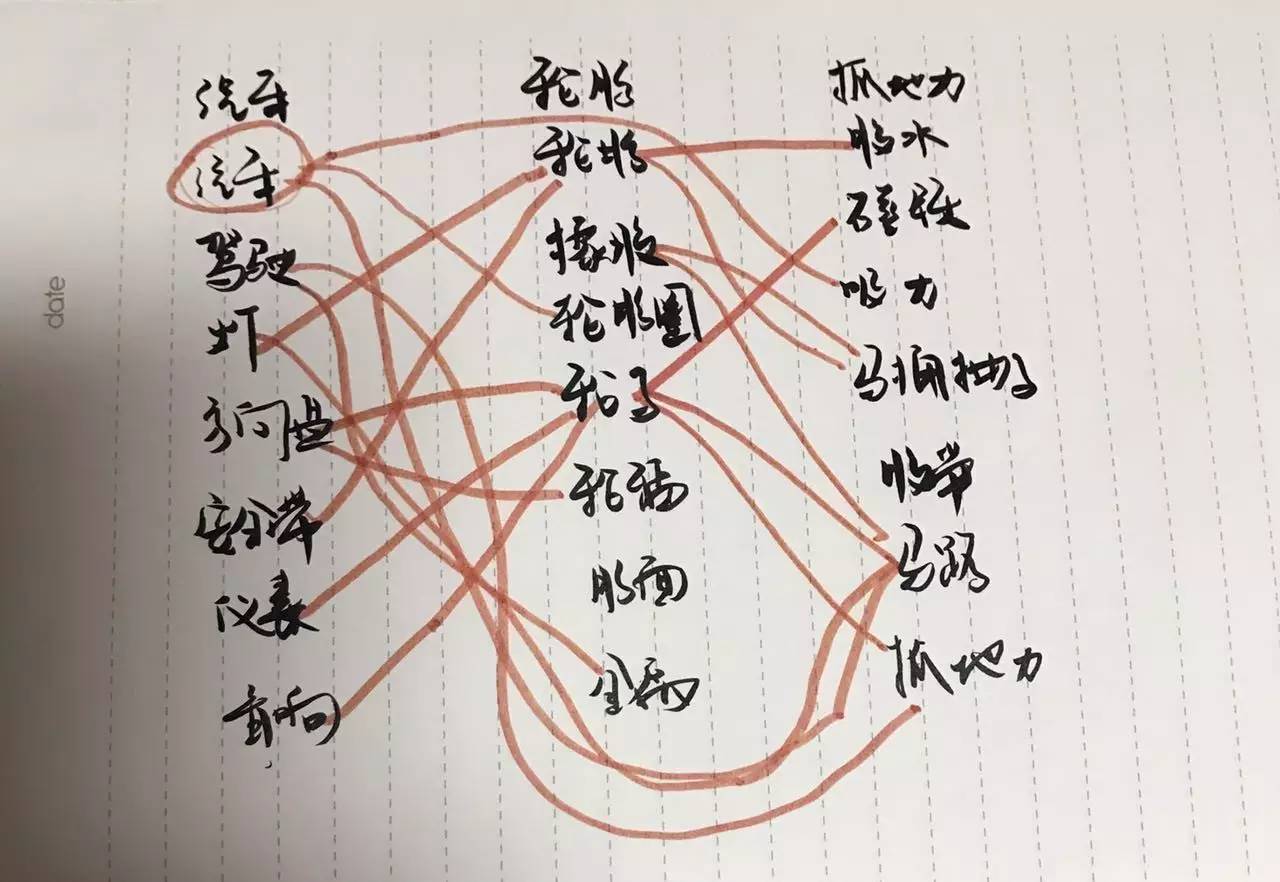 date
汽车
汽车
驾驶
灯
方向盘
安全带
仪表
音响
轮胎
轮胎
橡胶
轮胎圈
轮子
轮辐
胎面
金属
抓地力
胶水
吸力
马桶抽子
胶带
马路
抓地力